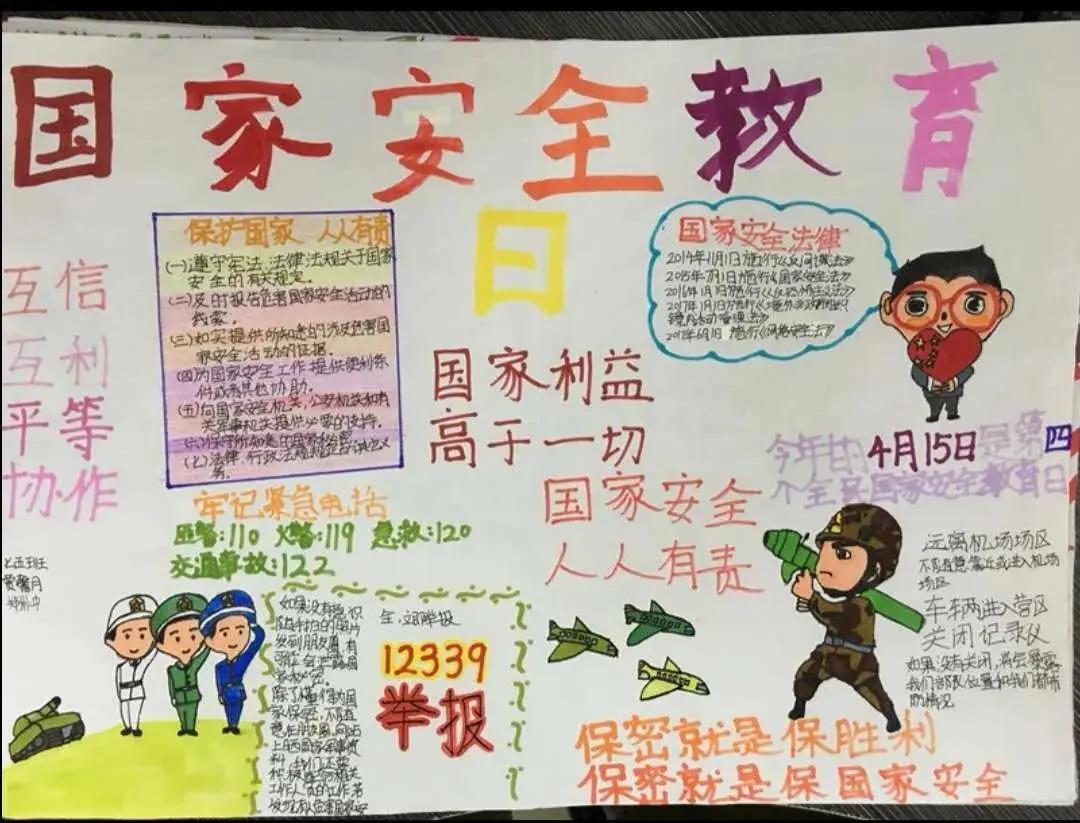 国家安全教育
日
保护国家 人人有责
(一)遵守宪法、法律法规关于国家
安全的有关规定。
(二)及时报告危害国家安全活动的
线索。
(三)如实提供所知悉的涉及危害国
家安全活动的证据。
(四)为国家安全工作提供便利条
件或者其他协助。
(五)向国家安全机关、公安机关和有
关军事机关提供必要的支持。
(六)保守所知悉的国家秘密。
(七)法律、行政法规规定的其他义
务。
国家安全法律
2014年11月1日施行《反间谍法》
2015年7月1日施行《国家安全法》
2016年1月1日施行《反恐怖主义法》
2017年1月1日施行《境外非政府组织
境内活动管理法》
2017年6月1日 施行《网络安全法》
互信
互利
平等
协作
国家利益
高于一切
国家安全
人人有责
今年的4月15日是第四
个全民国家安全教育日
牢记紧急电话
匪警:110 火警:119 急救:120
交通事故:122
七五班
黄馨月
如果没有意识
随手拍的照片
发到朋友圈,有
可能会泄露国
家秘密。
除了懂得为国
家保密,不随意
在朋友圈、网站
上晒国家军事资
料,我们还要
积极配合相关
工作人员的工作,若
12339
举报
远离机场场区
不随意靠近或进入机场
场区
车辆进入营区
关闭记录仪
如果没有关闭,将会暴露
我们部队位置和我们都市
的情况
保密就是保胜利
保密就是保国家安全